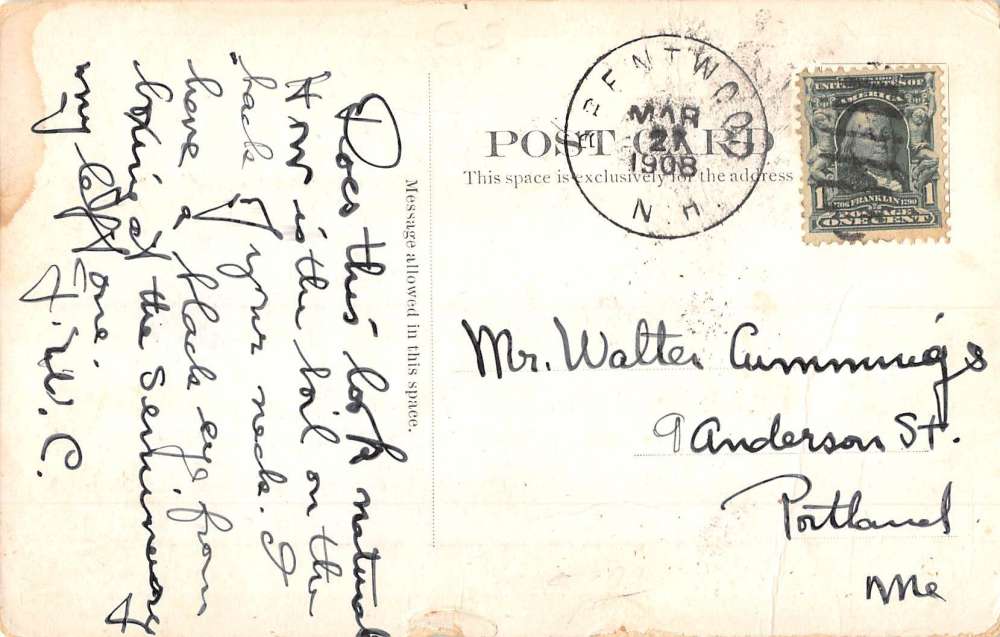 Does this look natural
How is the boil on the
back of your neck. I
have a black eye from
boxing at the Seminary
my left one.
F. W. C.
Message allowed in this space.
POST CARD
This space is exclusively for the address
BRENTWOOD
MAR
1908
N.H.
UNITED STATES OF
AMERICA
1 1706 FRANKLIN 1790 1
POSTAGE
ONE CENT
Mr. Walter Cummings
9 Anderson St.
Portland
Me